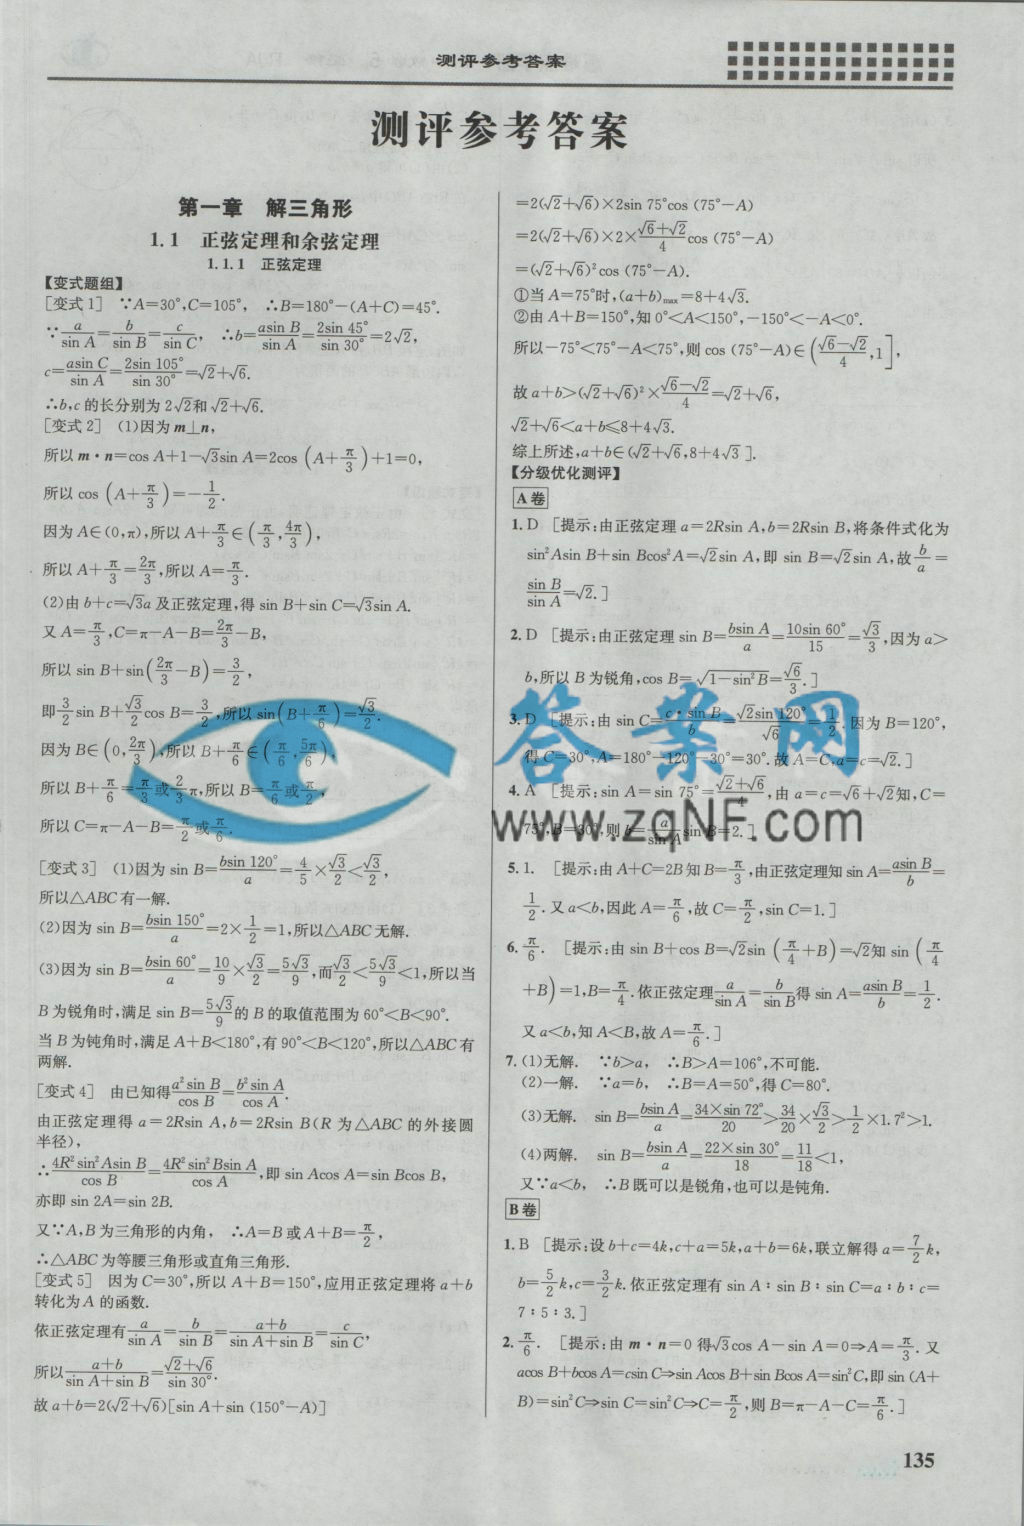 测评参考答案
测评参考答案
第一章 解三角形
1.1 正弦定理和余弦定理
1.1.1 正弦定理
【变式题组】
[变式1] ∵A=30°,C=105°, ∴B=180°-(A+C)=45°.
∵a/sin A=b/sin B=c/sin C, ∴b=asin B/sin A=2sin 45°/sin 30°=2√2,
c=asin C/sin A=2sin 105°/sin 30°=√2+√6.
∴b,c的长分别为2√2和√2+√6.
[变式2] (1)因为m⊥n,
所以m·n=cos A+1-√3sin A=2cos(A+π/3)+1=0,
所以cos(A+π/3)=-1/2.
因为A∈(0,π),所以A+π/3∈(π/3,4π/3),
所以A+π/3=2π/3,所以A=π/3.
(2)由b+c=√3a及正弦定理,得sin B+sin C=√3sin A.
又A=π/3,C=π-A-B=2π/3-B,
所以sin B+sin(2π/3-B)=3/2,
即3/2sin B+√3/2cos B=3/2,所以sin(B+π/6)=√3/2.
因为B∈(0,2π/3),所以B+π/6∈(π/6,5π/6),
所以B+π/6=π/3或2/3π,所以B=π/6或π/2,
所以C=π-A-B=π/2或π/6.
[变式3] (1)因为sin B=bsin 120°/a=4/5×√3/2<√3/2,
所以△ABC有一解.
(2)因为sin B=bsin 150°/a=2×1/2=1,所以△ABC无解.
(3)因为sin B=bsin 60°/a=10/9×√3/2=5√3/9,而√3/2<5√3/9<1,所以当
B为锐角时,满足sin B=5√3/9的B的取值范围为60°<B<90°.
当B为钝角时,满足A+B<180°,有90°<B<120°,所以△ABC有
两解.
[变式4] 由已知得a²sin B/cos B=b²sin A/cos A.
由正弦定理得a=2Rsin A,b=2Rsin B(R为△ABC的外接圆
半径),
∴4R²sin²Asin B/cos B=4R²sin²Bsin A/cos A,即sin Acos A=sin Bcos B,
亦即sin 2A=sin 2B.
又∵A,B为三角形的内角, ∴A=B或A+B=π/2,
∴△ABC为等腰三角形或直角三角形.
[变式5] 因为C=30°,所以A+B=150°,应用正弦定理将a+b
转化为A的函数.
依正弦定理有a/sin A=b/sin B=a+b/sin A+sin B=c/sin C,
所以a+b/sin A+sin B=√2+√6/sin 30°.
故a+b=2(√2+√6)[sin A+sin(150°-A)]
=2(√2+√6)×2sin 75°cos(75°-A)
=2(√2+√6)×2×√6+√2/4cos(75°-A)
=(√2+√6)²cos(75°-A).
①当A=75°时,(a+b)max=8+4√3.
②由A+B=150°,知0°<A<150°,-150°<-A<0°.
所以-75°<75°-A<75°,则cos(75°-A)∈(√6-√2/4,1],
故a+b>(√2+√6)²×√6-√2/4=√2+√6,
√2+√6<a+b≤8+4√3.
综上所述,a+b∈(√2+√6,8+4√3].
【分级优化测评】
A卷
1. D [提示:由正弦定理a=2Rsin A,b=2Rsin B,将条件式化为
sin²Asin B+sin Bcos²A=√2sin A,即sin B=√2sin A,故b/a=
sin B/sin A=√2.]
2. D [提示:由正弦定理sin B=bsin A/a=10sin 60°/15=√3/3,因为a>
b,所以B为锐角,cos B=√1-sin²B=√6/3.]
3. D [提示:由sin C=c·sin B/b=√2sin 120°/√6=1/2.因为B=120°,
得C=30°,A=180°-120°-30°=30°.故A=C,a=c=√2.]
4. A [提示:sin A=sin 75°=√2+√6/4,由a=c=√6+√2知,C=
75°,B=30°,则b=a/sin A·sin B=2.]
5. 1. [提示:由A+C=2B知B=π/3,由正弦定理知sin A=asin B/b=
1/2.又a<b,因此A=π/6,故C=π/2,sin C=1.]
6. π/6. [提示:由sin B+cos B=√2sin(π/4+B)=√2知sin(π/4
+B)=1,B=π/4.依正弦定理a/sin A=b/sin B得sin A=asin B/b=1/2.
又a<b,知A<B,故A=π/6.]
7. (1)无解. ∵b>a, ∴B>A=106°,不可能.
(2)一解. ∵a=b, ∴B=A=50°,得C=80°.
(3)无解. sin B=bsin A/a=34×sin 72°/20>34/20×√3/2>1/2×1.7²>1.
(4)两解. sin B=bsin A/a=22×sin 30°/18=11/18<1,
又∵a<b, ∴B既可以是锐角,也可以是钝角.
B卷
1. B [提示:设b+c=4k,c+a=5k,a+b=6k,联立解得a=7/2k,
b=5/2k,c=3/2k.依正弦定理有sin A∶sin B∶sin C=a∶b∶c=
7∶5∶3.]
2. π/6. [提示:由m·n=0得√3cos A-sin A=0⇒A=π/3.又
acos B+bcos A=csin C⇒sin Acos B+sin Bcos A=sin²C,即sin(A+
B)=sin²C⇒sin C=sin²C⇒C=π/2,则B=π-A-C=π/6.]
答案网
www.zqNF.com
135